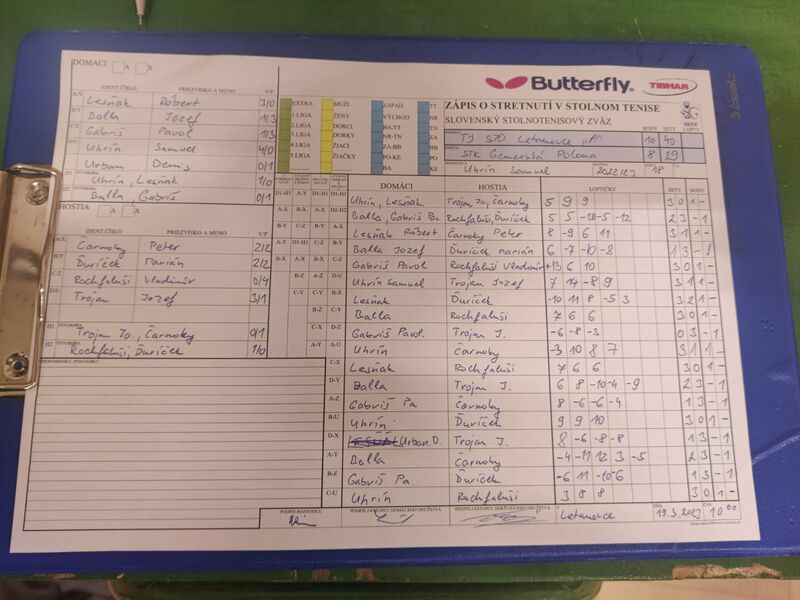 Butterfly
TIBHAR
ZÁPIS O STRETNUTÍ V STOLNOM TENISE
SLOVENSKÝ STOLNOTENISOVÝ ZVÄZ
SSTZ
BODY SETY LOPTY
TJ SPD Letanovce "A" 10 40
STK Gemerská Poloma 8 29
Uhrín Samuel 2022/23 18
EXTRA MUŽI ZÁPAD TT
1.LIGA ŽENY VÝCHOD NR
2.LIGA DORCI BA-TT TN
3.LIGA DORKY NR-TN ZA
4.LIGA ŽIACI ZA-BB BB
5.LIGA ŽIAČKY PO-KE PO
BA KE
DOMÁCI A X
IDENT ČÍSLO PRIEZVISKO A MENO V/P
A/X Lesňák Róbert 3/0
B/Y Dolla Jozef 1/3
C/Z Gabriš Pavol 1/3
D/U Uhrín Samuel 4/0
Urban Denis 0/1
D1 Uhrín, Lesňák 1/0
D2 Balla, Gabriš 0/1
HOSTIA A X
IDENT ČÍSLO PRIEZVISKO A MENO V/P
A/X Čarnoky Peter 2/2
B/Y Ďuríček Marián 2/2
C/Z Rochfaluši Vladimír 0/4
D/U Trojan Jozef 3/1
H1 Trojan Jo., Čarnoky 0/1
H2 Rochfaluši, Ďuríček 1/0
DOMÁCI HOSTIA LOPTIČKY SETY BODY
Uhrín, Lesňák Trojan Jo, Čarnoky 5 9 9 3 0 1 -
Balla, Gabriš Pa. Rochfaluši, Ďuríček 5 5 -10 -5 -12 2 3 - 1
Lesňák Róbert Čarnoky Peter 8 -9 6 11 3 1 1 -
Balla Jozef Ďuríček Marián 6 -7 -10 -8 1 3 - 1
Gabriš Pavol Rochfaluši Vladimír 13 6 10 3 0 1 -
Uhrín Samuel Trojan Jozef 7 14 -8 9 3 1 1 -
Lesňák Ďuríček -10 11 8 -5 3 3 2 1 -
Balla Rochfaluši 7 6 6 3 0 1 -
Gabriš Pavol. Trojan J. -6 -8 -3 0 3 - 1
Uhrín Čarnoky -3 10 8 7 3 1 1 -
C-X Lesňák Rochfaluši 7 6 6 3 0 1 -
D-Y Balla Trojan J. 6 8 -10 -4 -9 2 3 - 1
A-Z Gabriš Pa Čarnoky 8 -6 -6 -4 1 3 - 1
B-U Uhrín Ďuríček 9 9 10 3 0 1 -
D-X Urban D. Trojan J. 8 -6 -8 -8 1 3 - 1
A-Y Balla Čarnoky -4 -11 12 3 -5 2 3 - 1
B-Z Gabriš Pa. Ďuríček -6 11 -10 -6 1 3 - 1
C-U Uhrín Rochfaluši 3 8 8 3 0 1 -
PODPIS ROZHODCU PODPIS ZÁSTUPCU DOMÁCEHO DRUŽSTVA PODPIS ZÁSTUPCU HOSŤUJÚCEHO DRUŽSTVA
V Letanovce DŇA 19.3.2023 ČAS 10 00